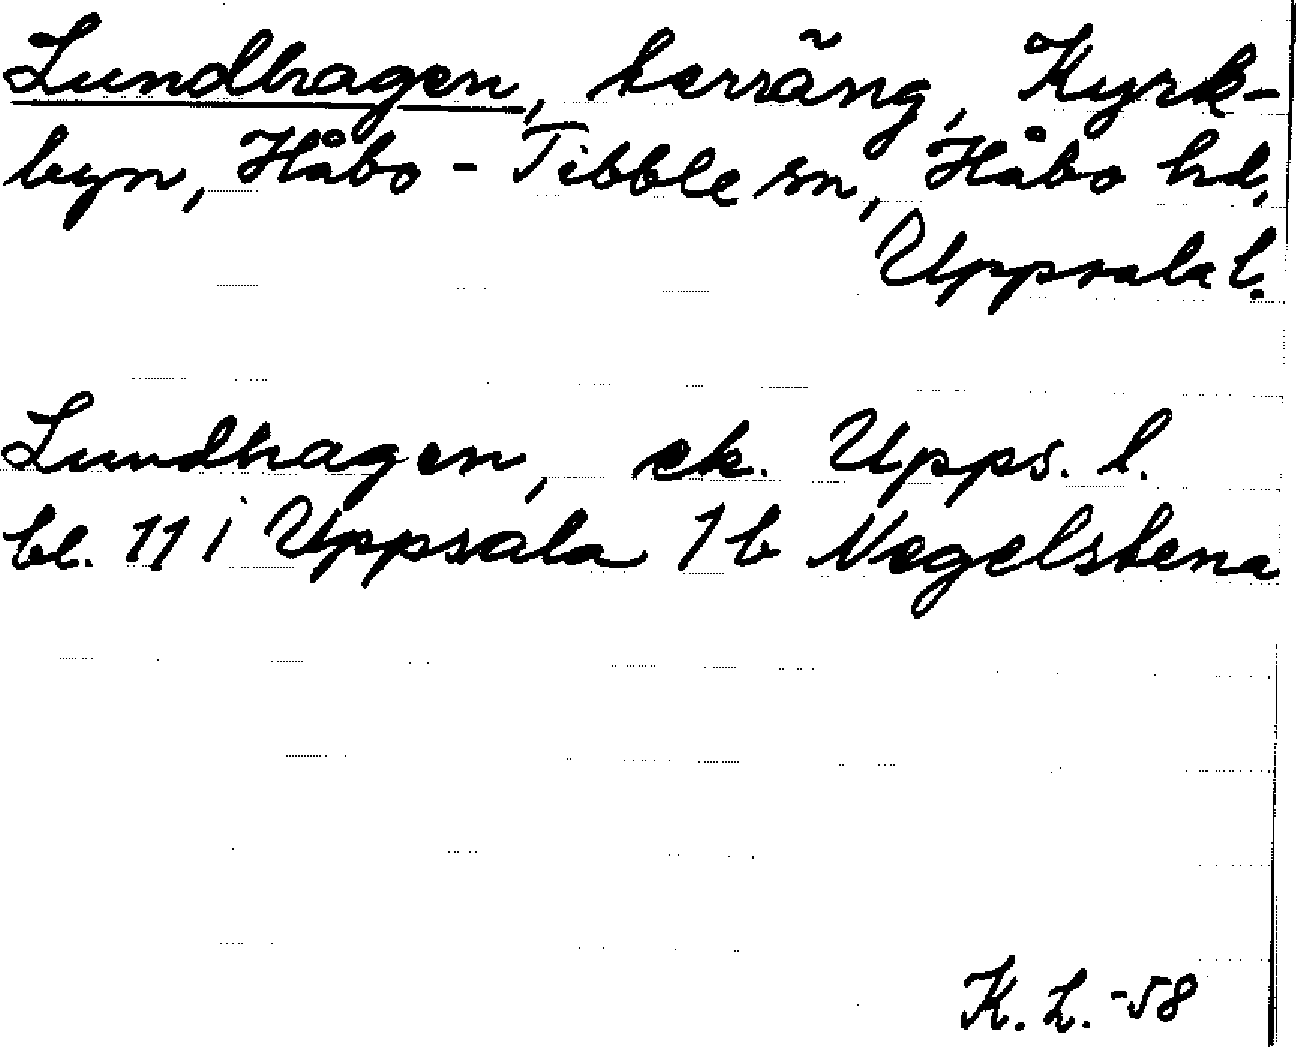 Lundhagen, terräng, Kyrk-
byn, Håbo-Tibble sn, Håbo hd,
Uppsala l.
Lundhagen, ek. Upps. l.
bl. 11 i Uppsala 1 b Negelstena
K. L. -58